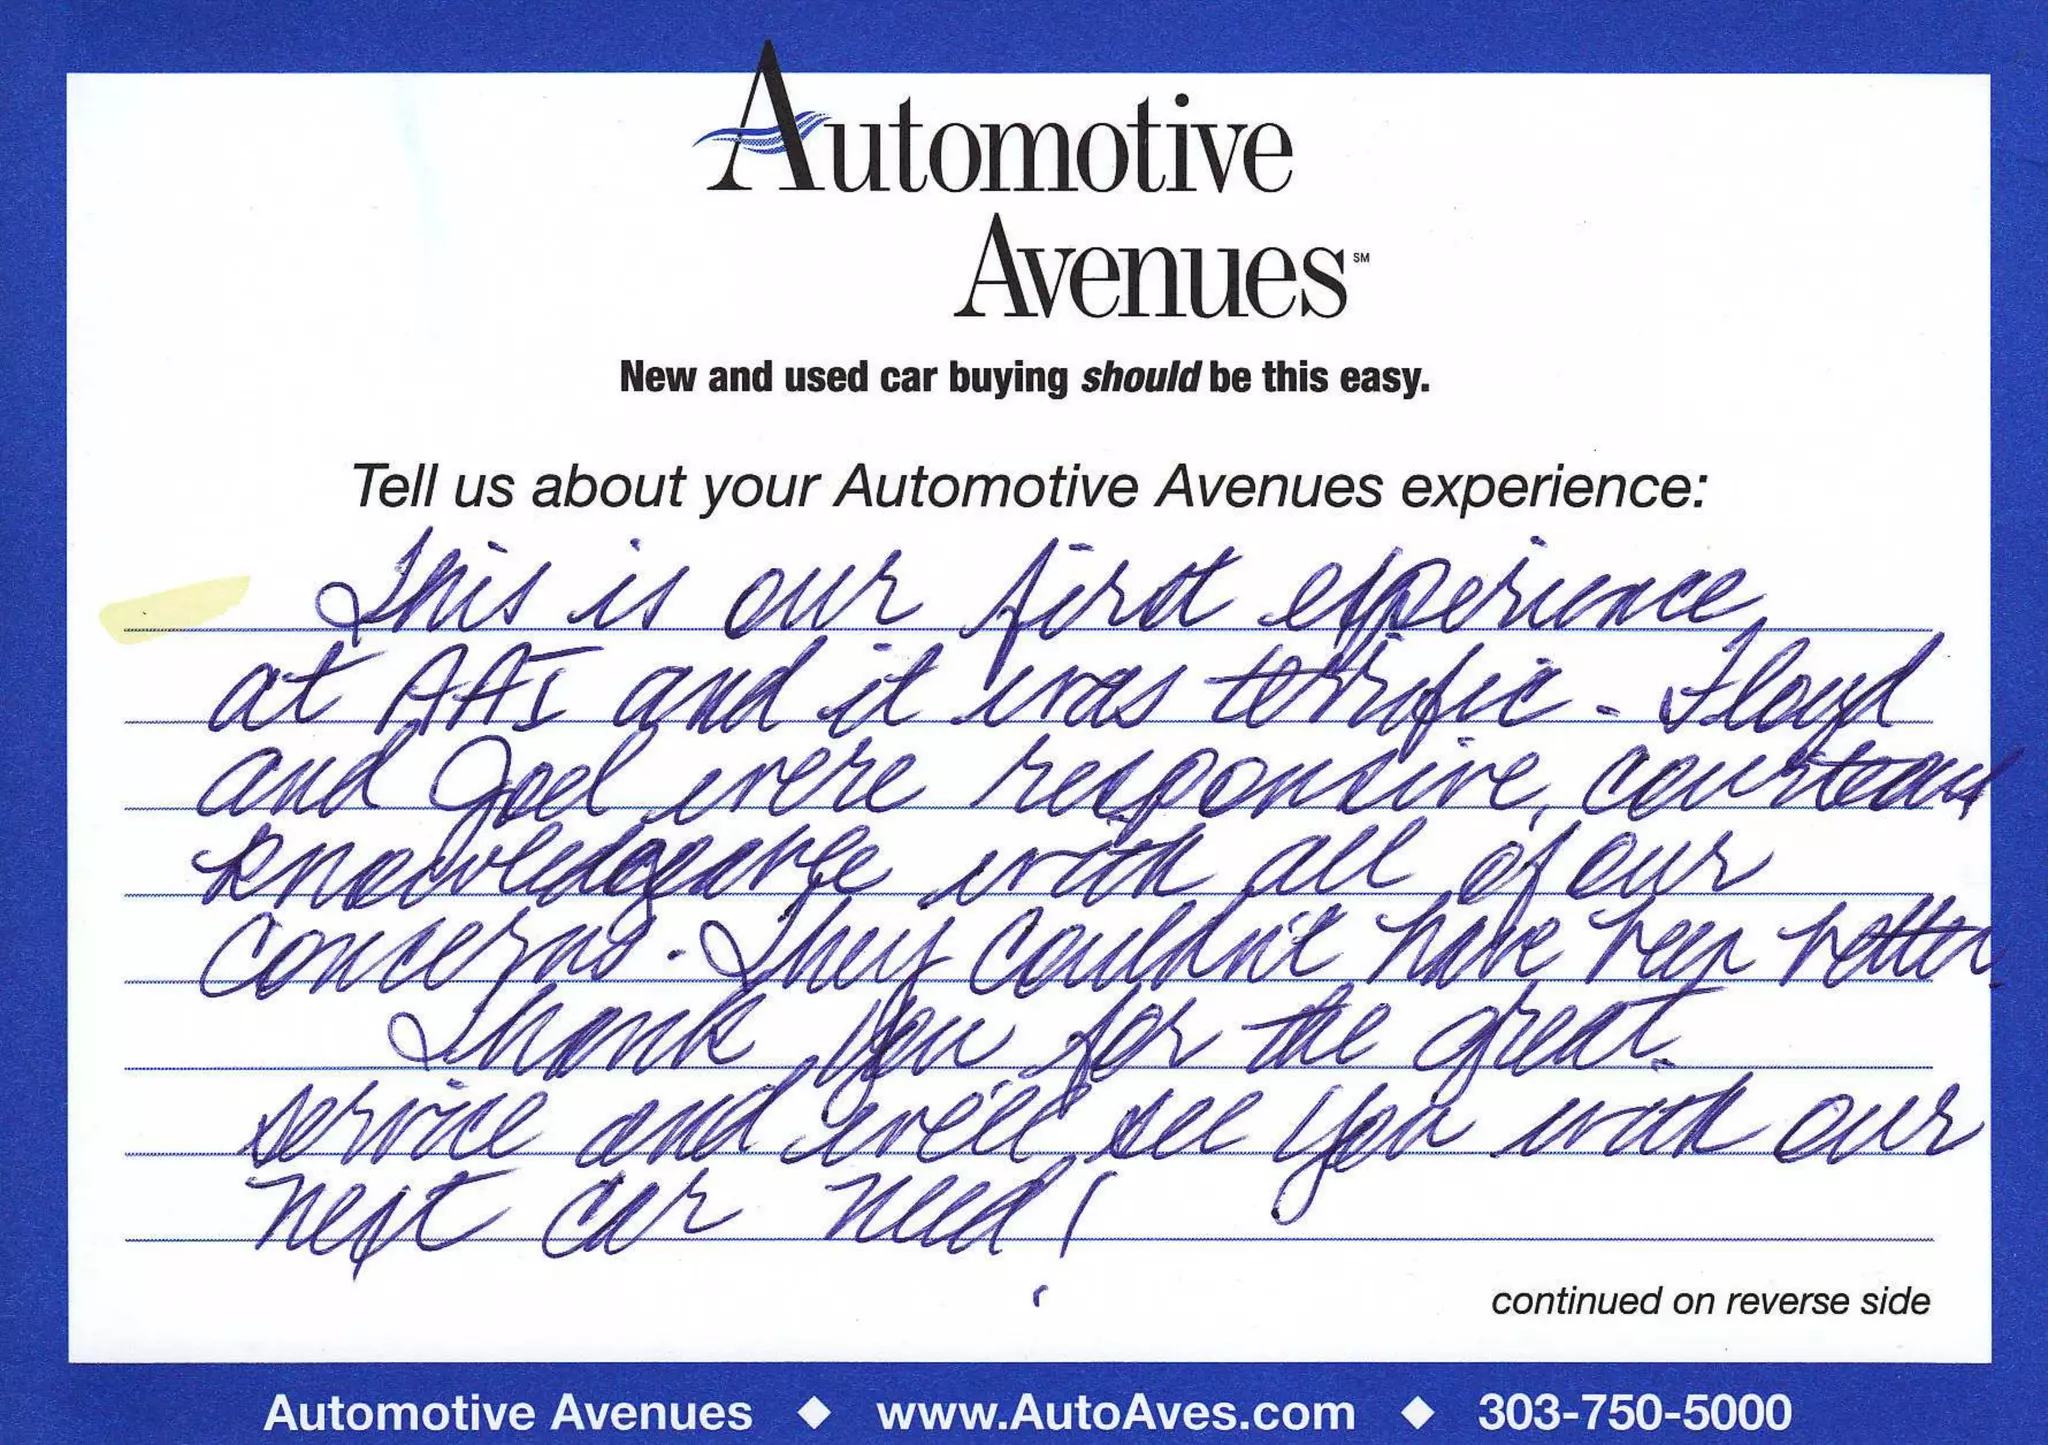 Automotive
Avenues℠
New and used car buying should be this easy.
Tell us about your Automotive Avenues experience:
This is our first experience
at AAI and it was terrific. Floyd
and Joel were responsive, courteous,
knowledgeable with all of our
concerns. They couldn't have been better.
Thank you for the great
service and we'll see you with our
next car need!
continued on reverse side
Automotive Avenues ◆ www.AutoAves.com ◆ 303-750-5000